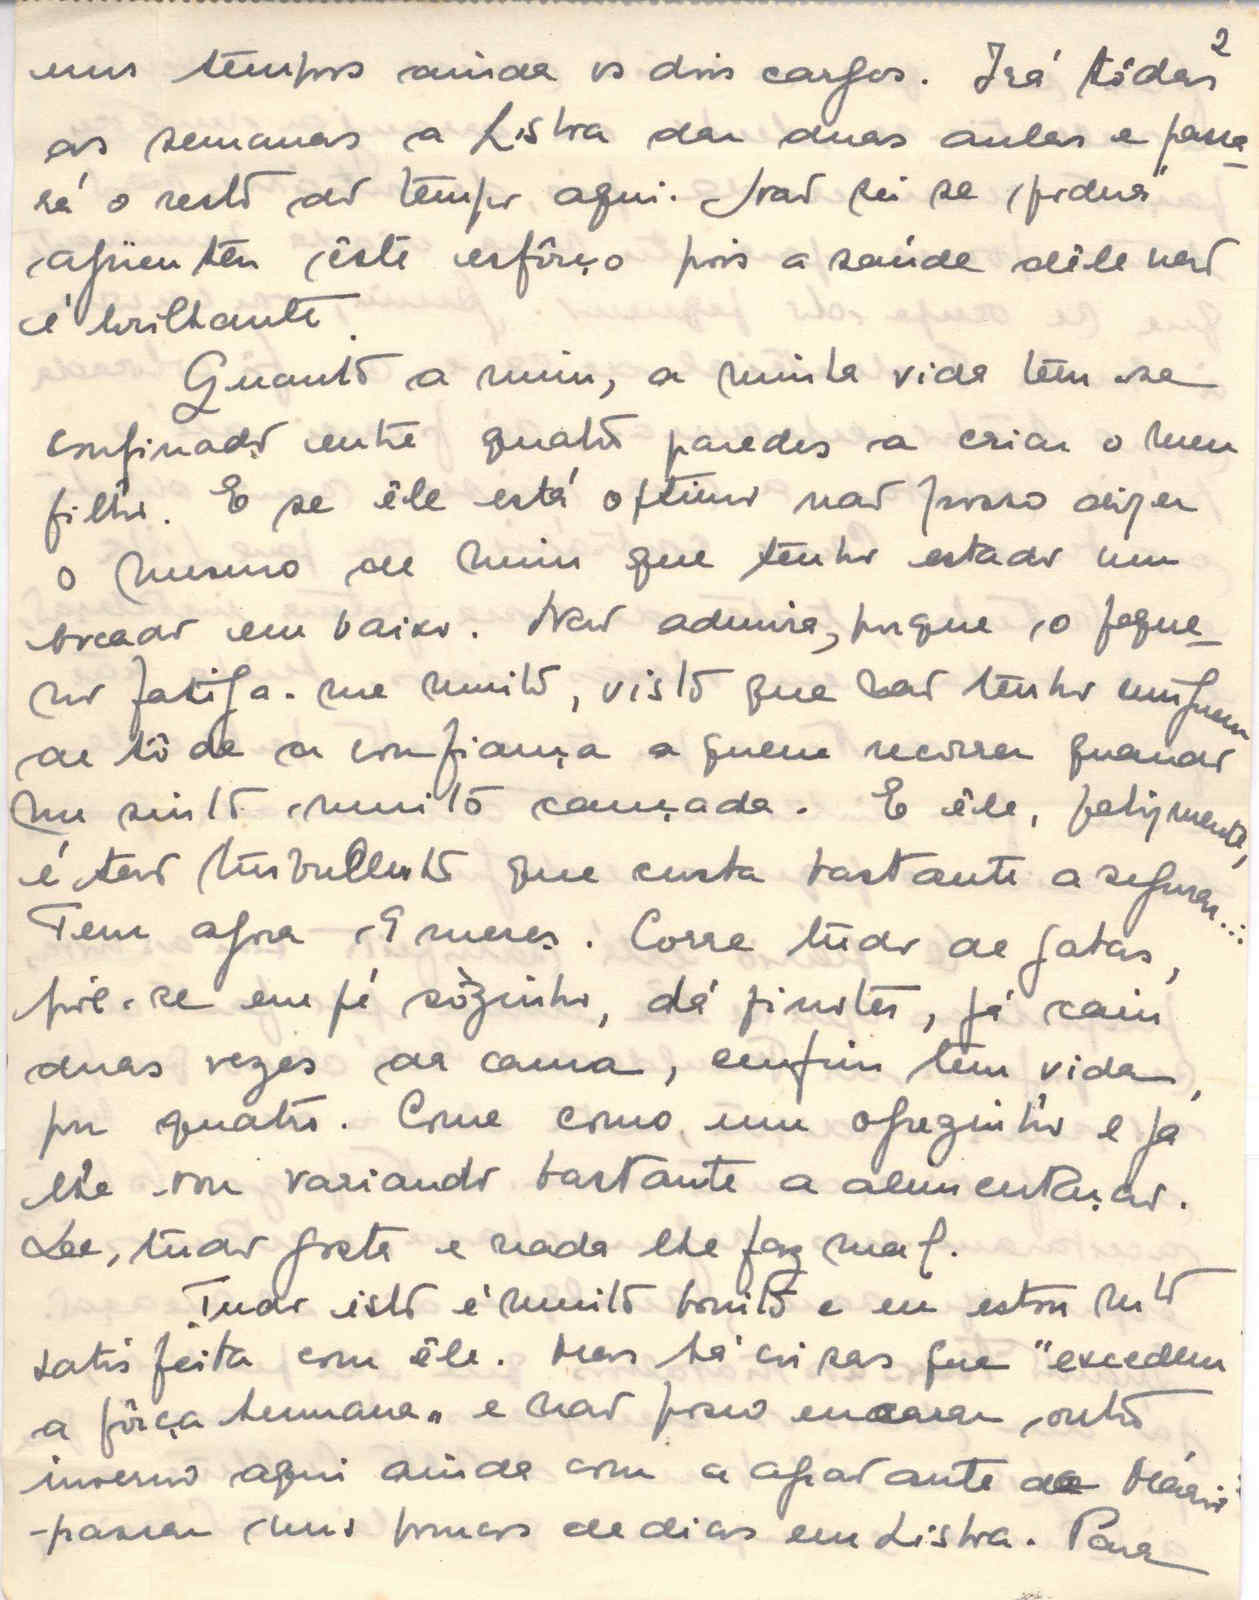 2
uns tempos ainda os dois cargos. Irá tôdas
as semanas a Lisboa dar duas aulas e passa-
rá o resto do tempo aqui. Não sei se poderá
agüentar êste esfôrço pois a saúde dêle não
é brilhante.
Quanto a mim, a minha vida tem-se
confinado entre quatro paredes a criar o meu
filho. E se êle está óptimo não posso dizer
o mesmo de mim que tenho estado um
bocado em baixo. Não admira, porque o peque-
no fatiga-me muito, visto que não tenho ninguem
de tôda a confiança a quem recorrer quando
me sinto muito cançada. E êle, felizmente,
é tão turbulento que custa bastante a segurar...
Tem agora 9 meses. Corre tudo de gatas,
põe-se em pé sòzinho, dá pinotes, já caiu
duas vezes da cama, emfim tem vida
por quatro. Come como um ogrezinho e já
lhe vou variando bastante a alimentação.
De tudo gosta e nada lhe faz mal.
Tudo isto é muito bonito e eu estou mtº
satisfeita com êle. Mas há coisas que "excedem
a fôrça humana" e não posso encarar outro
inverno aqui ainda com a agravante de Mário
passar uns poucos de dias em Lisboa. Para